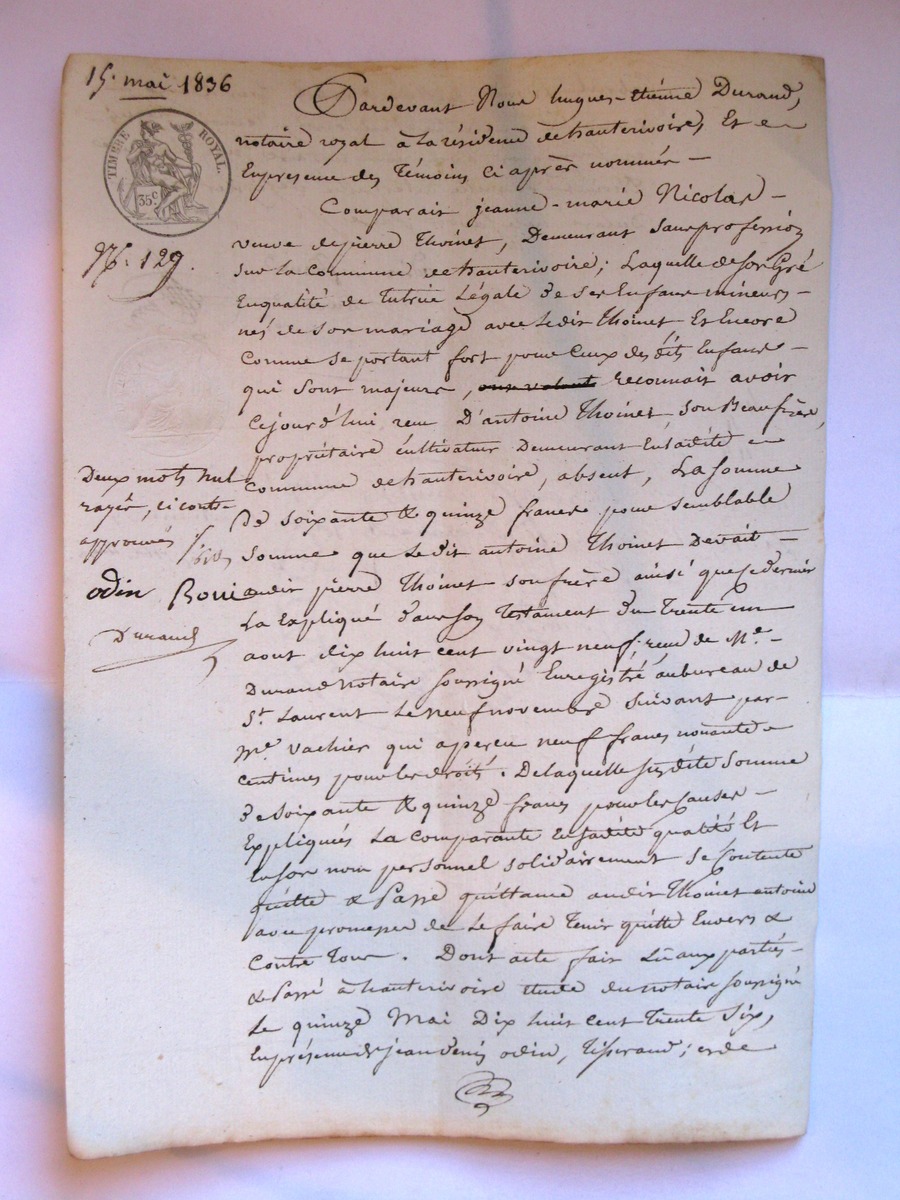 15. mai 1836
TIMBRE ROYAL.
35c
N°. 129.
Pardevant Nous hugues-étiénne Durand,
notaire royal à la résidence de hauterivoire, Et en
En présence des Témoins ci après nommés —
Comparait jeanne-marie Nicolas —
veuve de pierre Thoinet, Demeurant Sans profession
sur la Commune de hauterivoire; Laquelle de son Gré
En qualité de Tutrice Légale de ses Enfans mineurs —
nés de son mariage avec Ledit Thoinet Et Encore
Comme se portant fort pour Ceux desdits Enfans —
qui sont majeurs, reconnait avoir
Cejourd'hui reçu D'antoine Thoinet, son Beaufrère,
propriétaire cultivateur Demeurant En ladite
Commune de hauterivoire, absent, La Somme
De soixante & quinze francs pour semblable
Somme que Ledit antoine Thoinet Devait —
audit pierre Thoinet son frère ainsi que ce dernier
La Expliqué dans son Testament du Trente un
aout dix huit cent vingt neuf, reçu de Me. —
Durand notaire soussigné Enregistré au bureau de
St. Laurent Le neuf novembre suivant par —
Me. Vachier qui a perçu neuf francs nonante
centimes pour les droits. De laquelle susdite Somme
de soixante & quinze francs pour les Causes —
Expliqués La Comparante En sadite qualité Et
En son nom personnel solidairement se Contente
quitte & Passe quittance audit Thoinet antoine
avec promesse de Le faire Tenir quitte Envers &
Contre Tous. Dont acte fait Lu aux parties —
& Passé à hauterivoire étude du notaire soussigné
Le quinze Mai Dix huit cent Trente Six,
En présence de jean denis odin, Tisserand; et de
Deux mots nuls
rayés, ci contre
approuvés
odin Roui
Durand